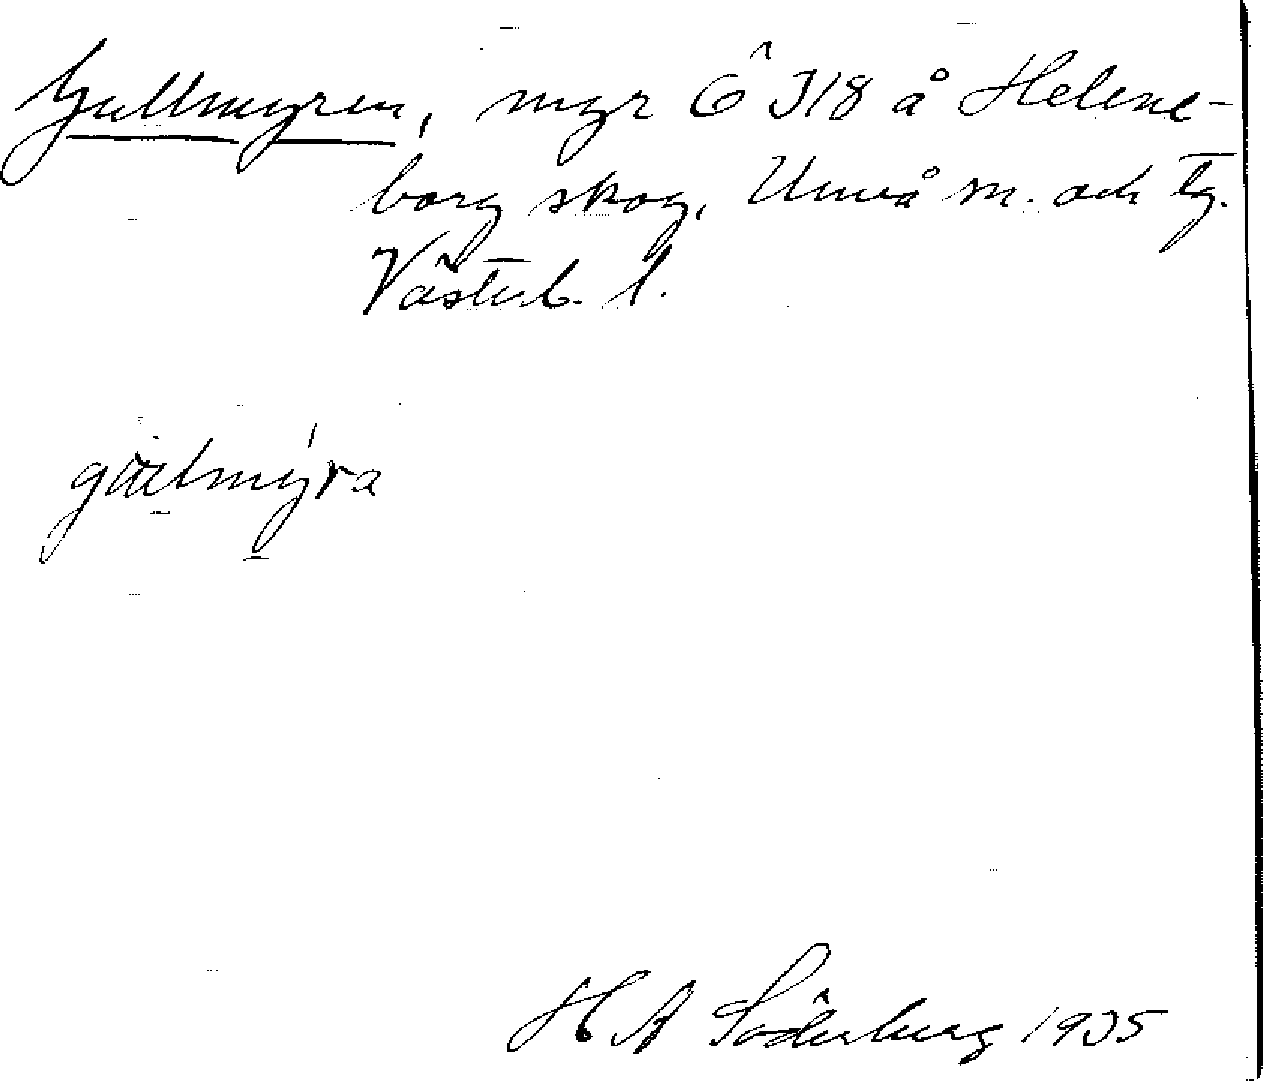 Gullmyren, myr Ö 318 å Helene-
borg skog, Umeå m. och tg.
Västerb. l.
H A Söderberg 1935